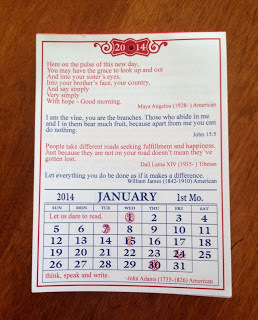 2014
Here on the pulse of this new day,
You may have the grace to look up and out
And into your sister's eyes,
Into your brother's face, your country,
And say simply
Very simply
With hope - Good morning.
Maya Angelou (1928- ) American
I am the vine, you are the branches. Those who abide in me
and I in them bear much fruit, because apart from me you can
do nothing.
John 15:5
People take different roads seeking fulfillment and happiness.
Just because they are not on your road doesn't mean they've
gotten lost.
Dali Lama XIV (1935- ) Tibetan
Let everything you do be done as if it makes a difference.
William James (1842-1910) American
2014 JANUARY 1st Mo.
SUN MON TUE WED THU FRI SAT
Let us dare to read, 1 2 3 4
5 6 7 8 9 10 11
12 13 14 15 16 17 18
19 20 21 22 23 24 25
26 27 28 29 30 31
think, speak and write. -John Adams (1735-1826) American